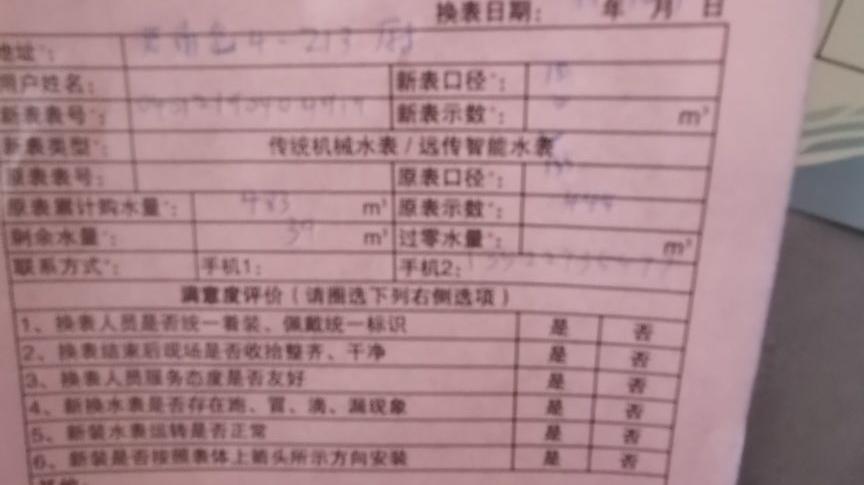 换表日期： 年 月 日
地址*： 4-213
用户姓名： 新表口径*： 15
新表表号*： 新表示数*： 0 m³
新表类型*： 传统机械水表 / 远传智能水表
原表表号： 原表口径*：
原表累计购水量*： 483 m³ 原表示数*： 444
剩余水量*： 39 m³ 过零水量*： m³
联系方式*： 手机1： 手机2：
满意度评价（请圈选下列右侧选项）
1、换表人员是否统一着装、佩戴统一标识 是 否
2、换表结束后现场是否收拾整齐、干净 是 否
3、换表人员服务态度是否友好 是 否
4、新换水表是否存在跑、冒、滴、漏现象 是 否
5、新装水表运转是否正常 是 否
6、新装是否按照表体上箭头所示方向安装 是 否